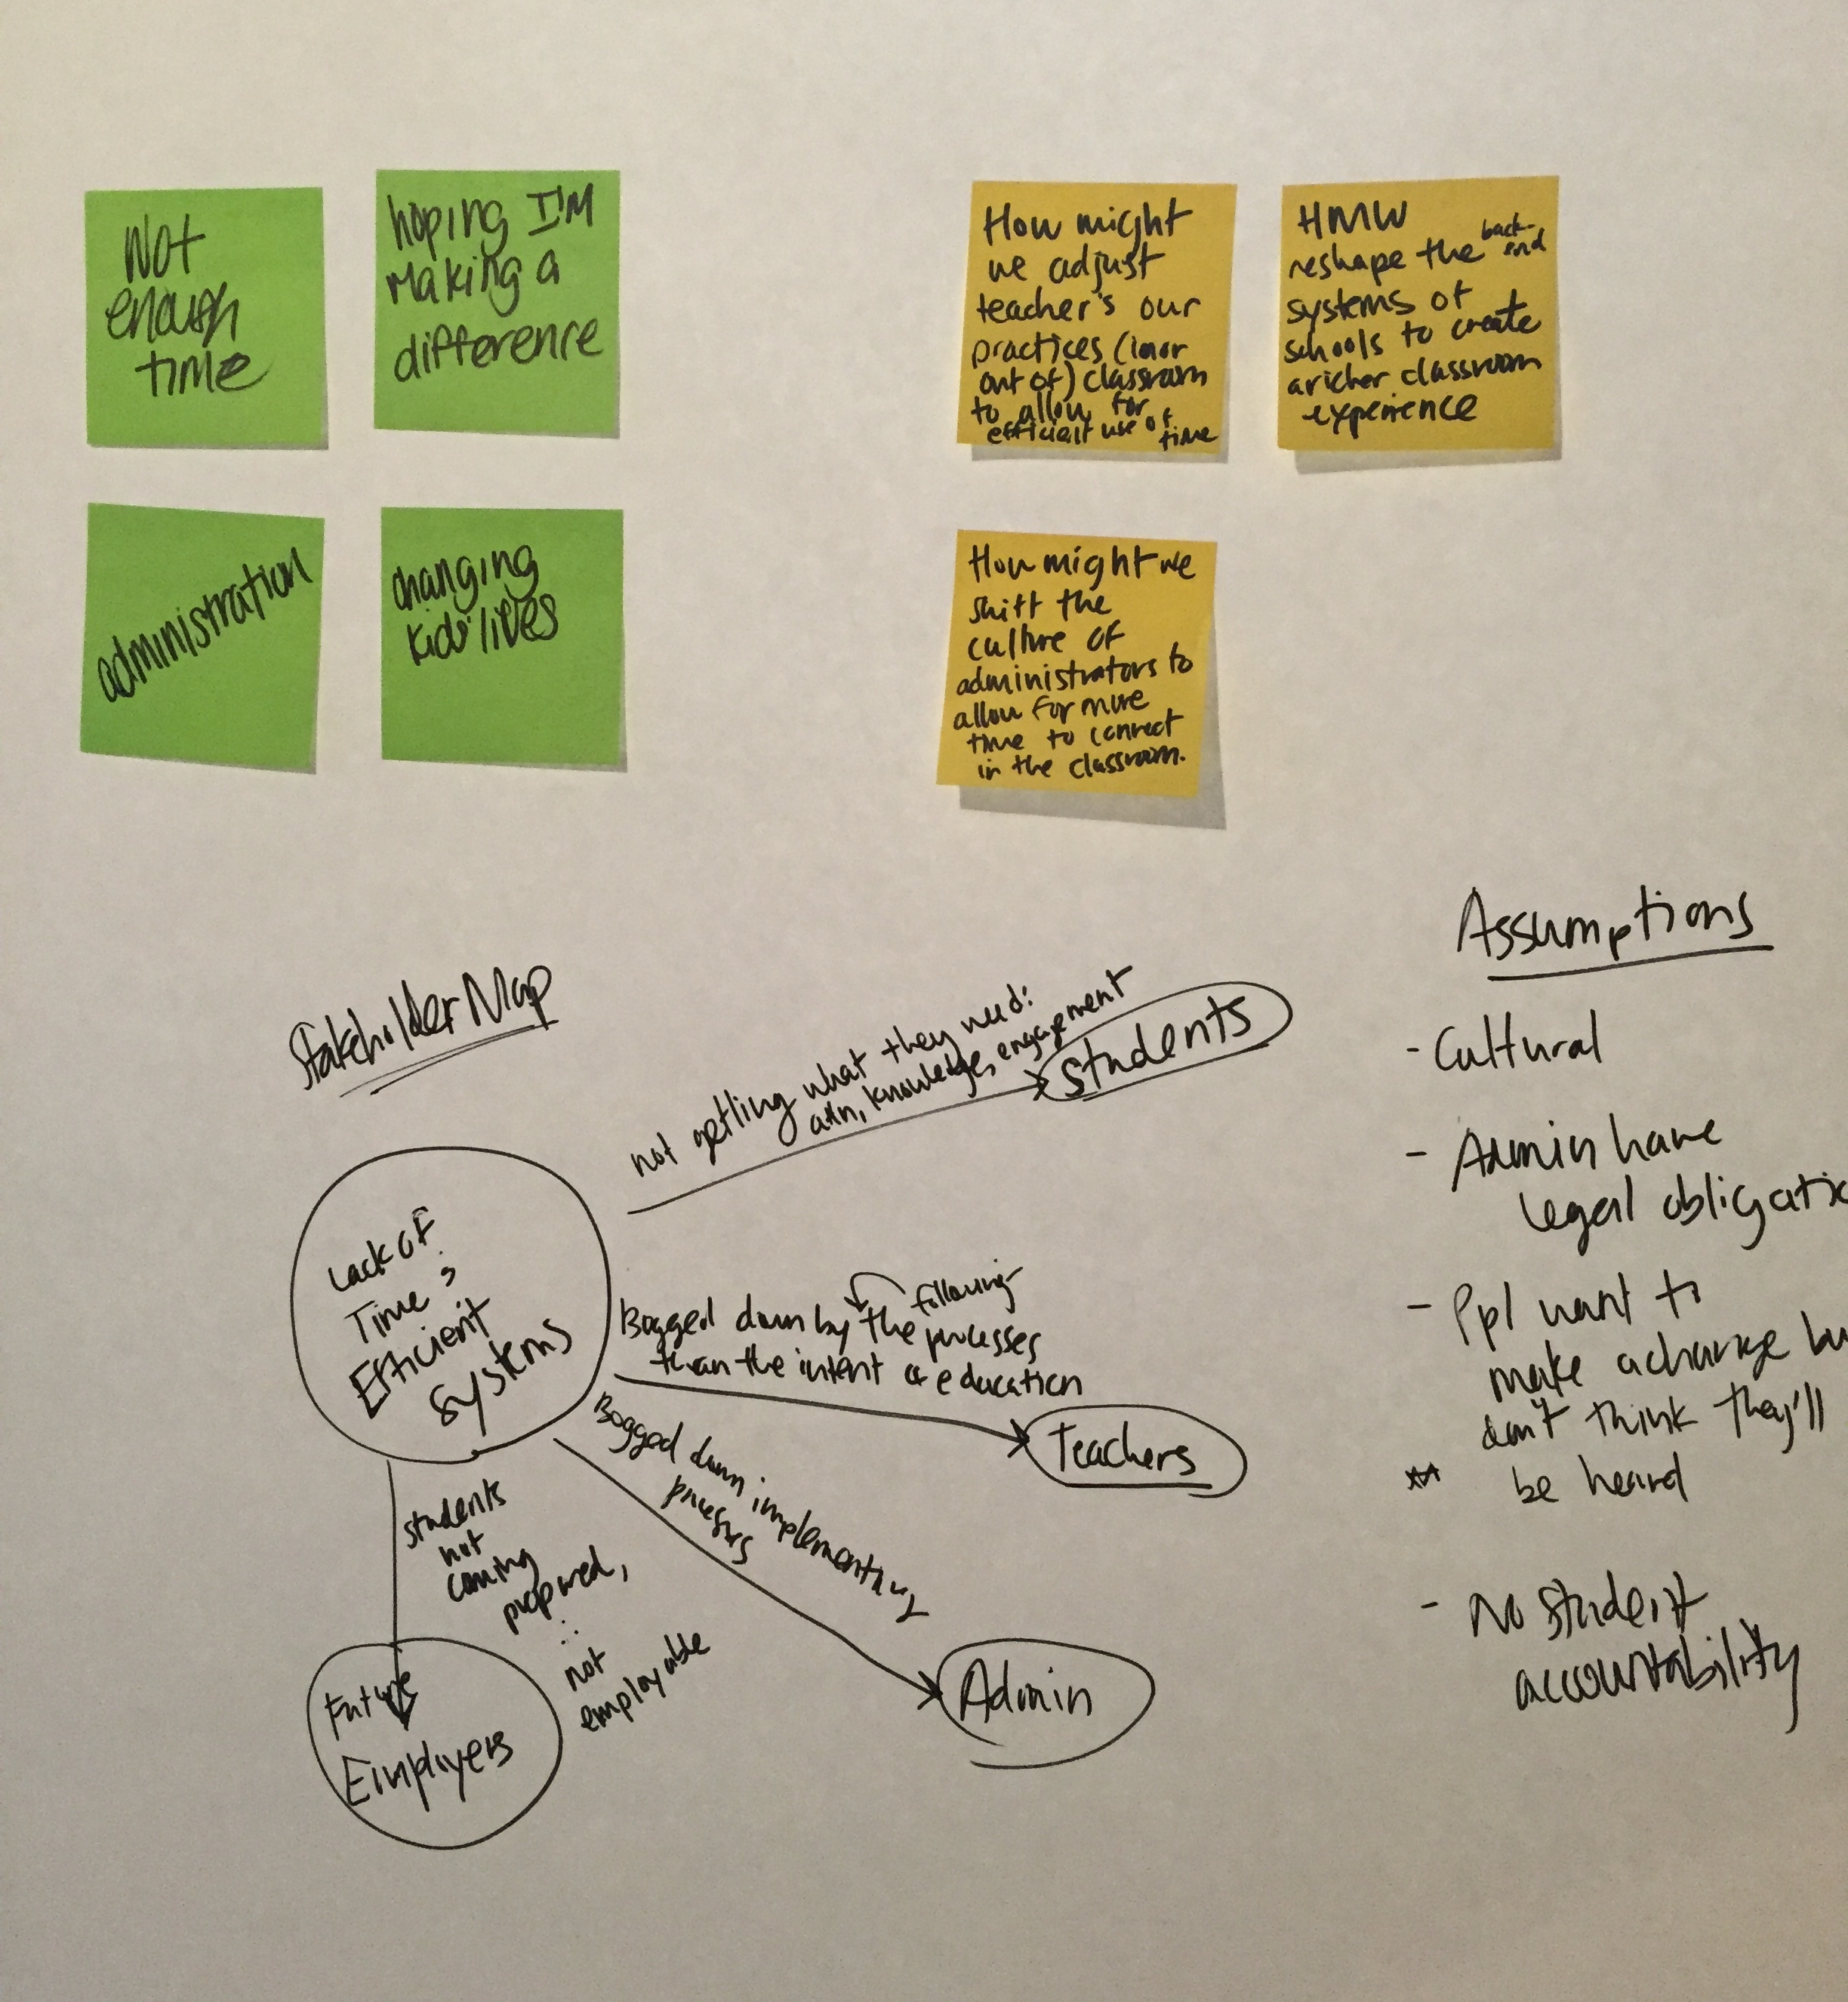 Not
enough
time
hoping I'M
making a
difference
administration
changing
kids' lives
How might
we adjust
teacher's our
practices (in or
out of) classroom
to allow for
efficient use of time
HMW
reshape the back-end
systems of
schools to create
a richer classroom
experience
How might we
shift the
culture of
administrators to
allow for more
time to connect
in the classroom.
Stakeholder Map
Lack of
Time &
Efficient
Systems
not getting what they need:
attn, knowledge, engagement
Students
Bogged down by following the processes
than the intent of education
Teachers
Bogged down implementing
processes
Admin
students
not
coming
prepared,
∴
not
employable
Future
Employers
Assumptions
- Cultural
- Admin have
legal obligatio
- Ppl want to
make a change bu
don't think they'll
** be heard
- No student
accountability